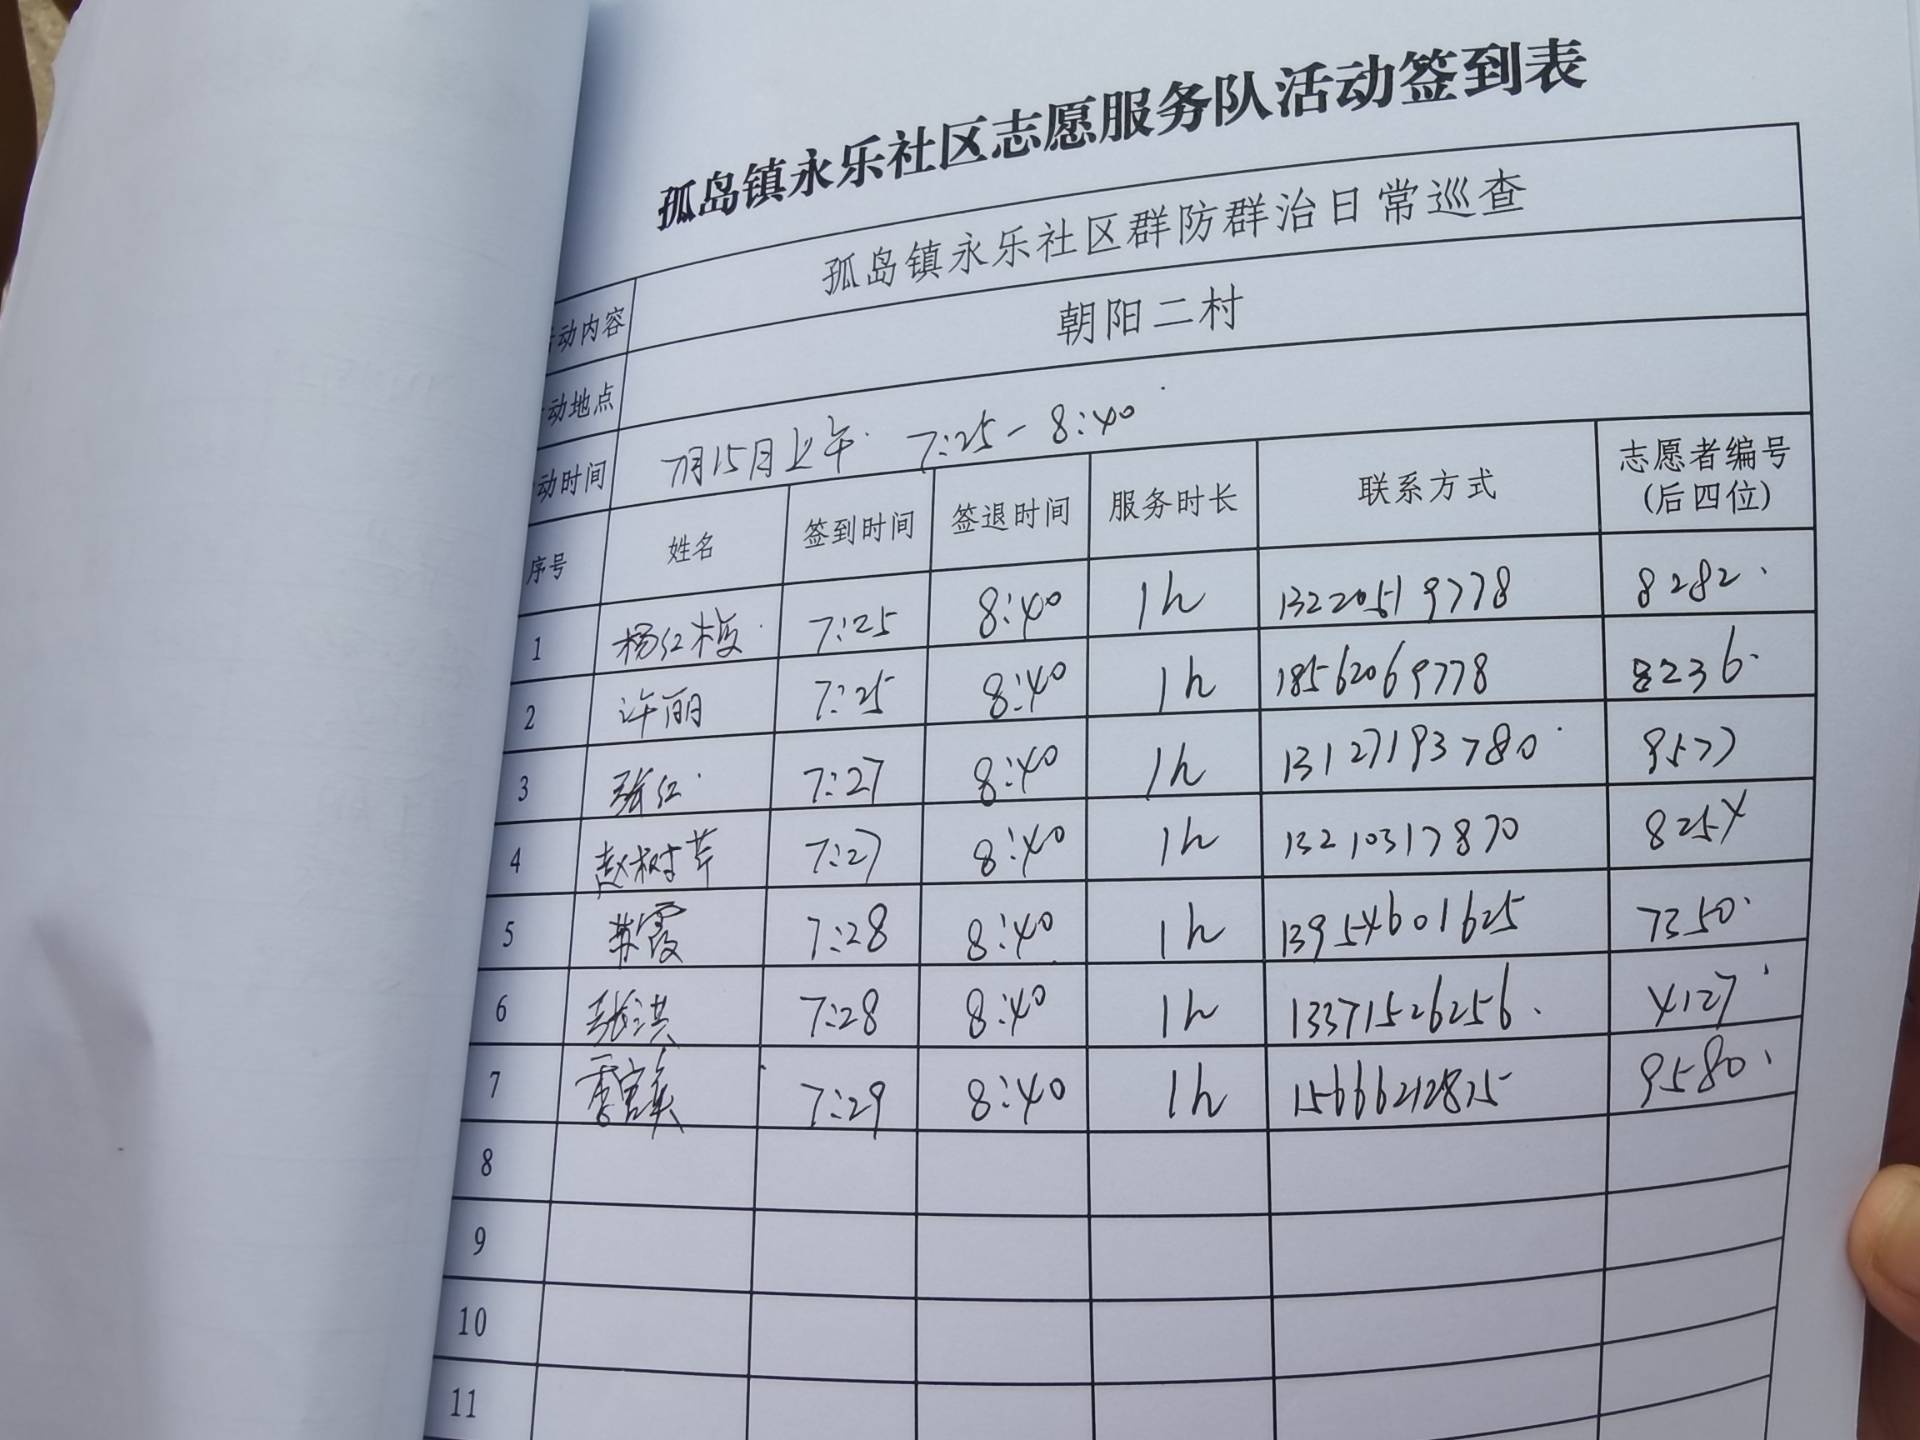 孤岛镇永乐社区志愿服务队活动签到表
动内容 孤岛镇永乐社区群防群治日常巡查
动地点 朝阳二村
动时间 7月15日上午 7:25-8:40
序号 姓名 签到时间 签退时间 服务时长 联系方式 志愿者编号
(后四位)
1 杨红梅 7:25 8:40 1h 13220519778 8282
2 许丽 7:25 8:40 1h 18562069778 8236
3 张红 7:27 8:40 1h 13127193780 9577
4 赵树芹 7:27 8:40 1h 13210317870 8254
5 苏霞 7:28 8:40 1h 13954601625 7350
6 张洪 7:28 8:40 1h 13371526256 4127
7 7:29 8:40 1h 15666212875 9580
8
9
10
11